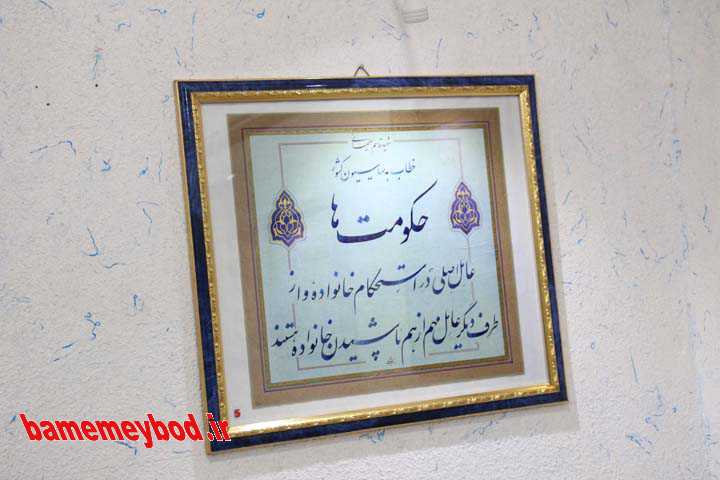 خطاب به سیاسیون کشور
حکومت‌ها
عامل اصلی در استحکام خانواده و از
طرف دیگر عامل مهم از هم پاشیدن خانواده هستند
5
bamemeybod.ir